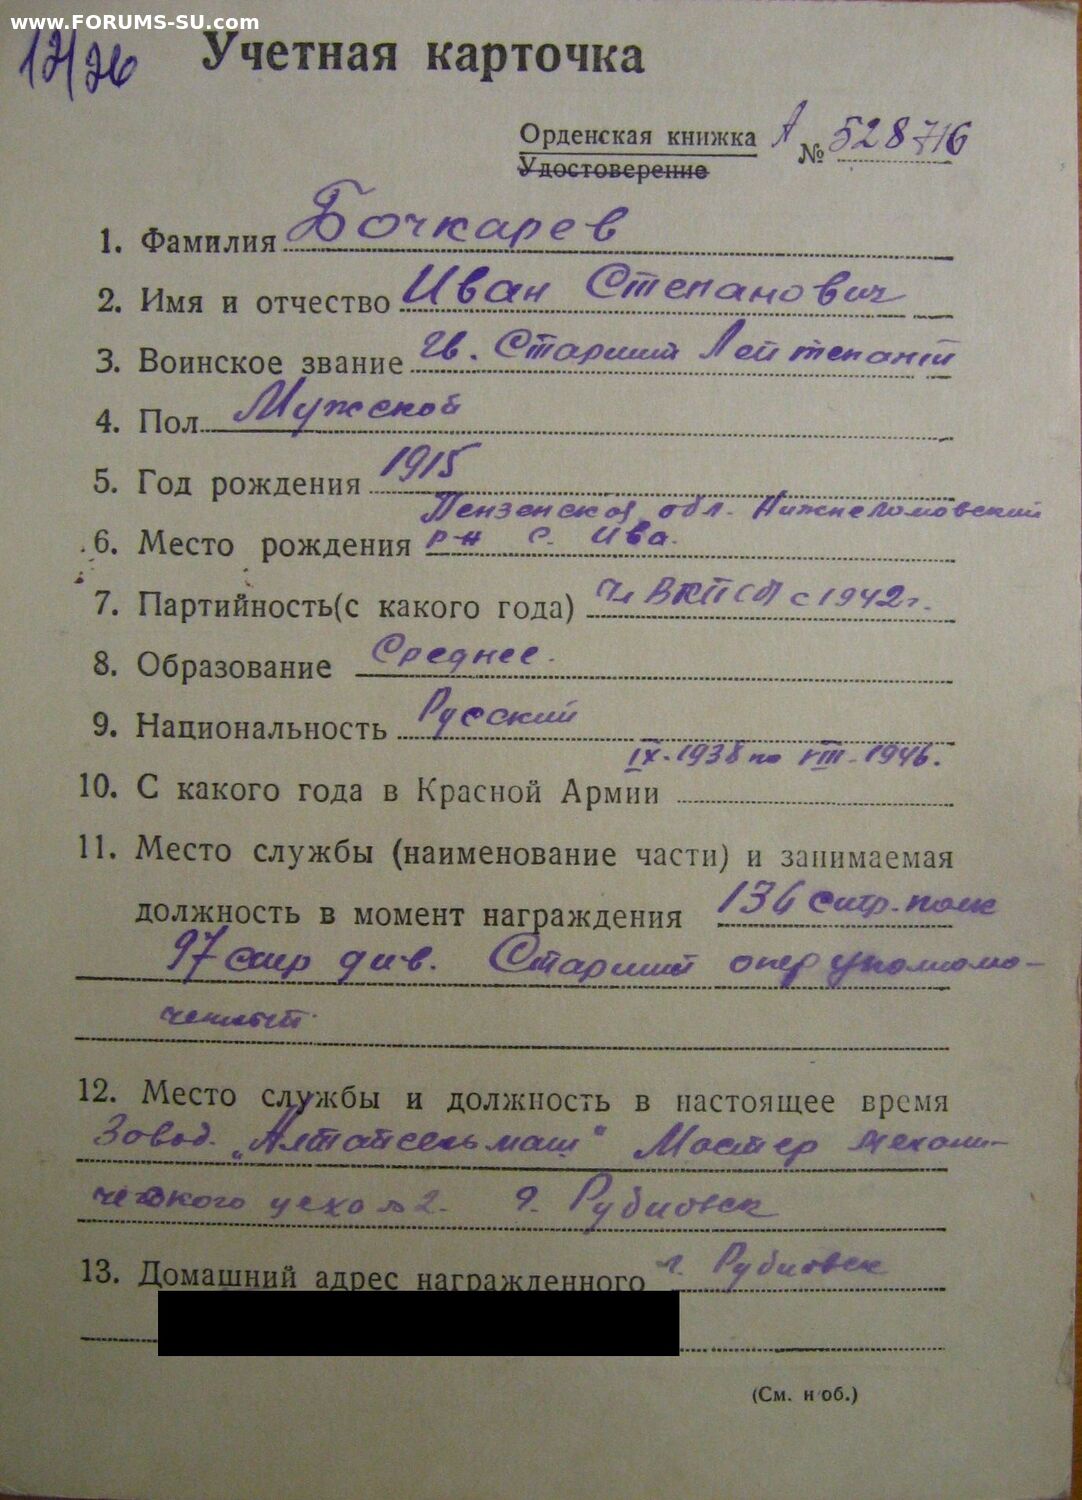 www.FORUMS-SU.com
12/26
Учетная карточка
Орденская книжка А № 528716
Удостоверение
1. Фамилия Бочкарев
2. Имя и отчество Иван Степанович
3. Воинское звание гв. Старший Лейтенант
4. Пол Мужской
5. Год рождения 1915
Пензенской обл. Нижнеломовский
6. Место рождения р-н с. Ива.
7. Партийность(с какого года) Чл ВКП(б) с 1942г.
8. Образование Среднее.
9. Национальность Русский
IX-1938 по VIII-1946.
10. С какого года в Красной Армии
11. Место службы (наименование части) и занимаемая
должность в момент награждения 136 стр. полк
97 стр див. Старший оперуполномо-
ченный.
12. Место службы и должность в настоящее время
Завод. „Алтайсельмаш" Мастер механи-
ческого цеха №2. г. Рубцовск
13. Домашний адрес награжденного г. Рубцовск
(См. н об.)